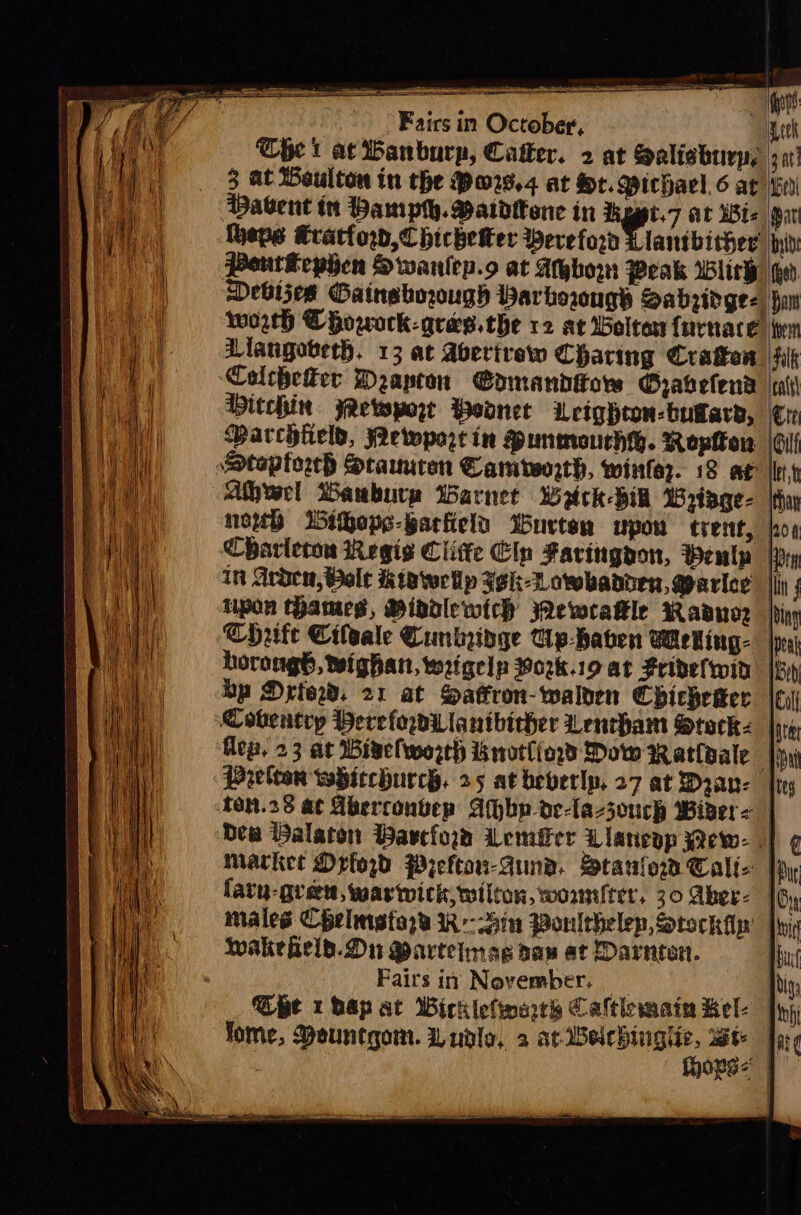 Fairs in October,
The 1 at Banbury, Caster. 2 at Salisbury,
3 at Boulton in the Mors. 4 at St. Michael. 6 at
Havent in Hampsh. Maidstone in Kent. 7 at Bi-
shops stratford, Chichester Hereford Llanibither
Pentstephen Swansey. 9 at Ashborn Peak Blith
Devizes Gainsborough Harborough Sabridge-
worth Thorrock-grees. the 12 at Bolton furnace
Llangoveth. 13 at Abertrow Charing Craston
Colchester Drayton Edmandstow Gravesend
Hitchin Newport Hodnet Leighton-bussard,
Marchfield, Newport in Munmouthsh. Royston
Stopforth Staunton Tamworth, winsor. 18 at
Ashwel Banbury Barnet Brick-hill Bridge-
north Bishops-hatfield Burton upon trent,
Charleton Regis Cliffe Ely Faringdon, Henly
in Arden, Holt Kidwelly Isk-Lowhadden, Marloe
upon thames, Middlewich Newcastle Radnor
Thrist Tisdale Tunbridge Up-haven Welling-
borough, wighan, wrigely York. 19 at Frideswid
by Orford. 21 at Saffron-walden Chichester
Coventry Hereford Llanibither Lentham Stock-
sley. 23 at Bidesworth Knotsford Dow Ratsdale
Preston whitchurch. 25 at beverly. 27 at Dran-
ton. 28 at Aberconvey Ashby-de-la-zouch Bider-
den Halaton Hartford Lemster Llanedy New-
market Oxford Preston-Aund. Stanford Talis-
sarn-green, warwick, wilton, wormster. 30 Aber-
males Chelmsford Poultheley, Stocksly
wakefield. On Martelmas day at Darnton.
Fairs in November.
The 1 day at Bicklesworth Castlemain Kel-
lome, Mountgom. Ludlo, 2 at Bleichinglie, Bi-
shops-